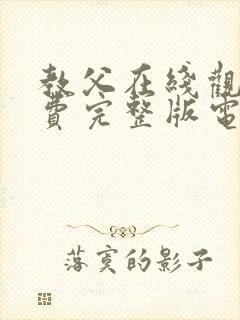 教父在綫觀
費完整版電
落寞的影子